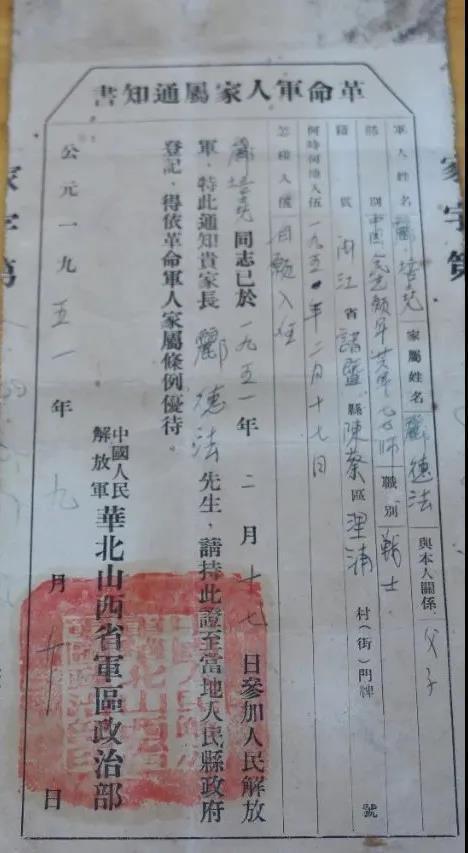 革命軍人家屬通知書
家字第
軍人姓名 酈培尧 家屬姓名 酈德法 與本人關係 父子
部別 中國人民志願軍 职别 戰士
籍貫 浙江省諸暨縣陳蔡區里浦村（街）門牌 號
何時何地入伍 一九五一年二月十七日
怎樣入伍 自願入伍
酈培尧同志已於一九五一年二月十七日參加人民解放
軍，特此通知貴家長酈德法先生，請持此證至當地人民縣政府
登記，得依革命軍人家屬條例優待。
中國人民
解放軍
華北山西省軍區政治部
公元一九五一年九月 日
家字第